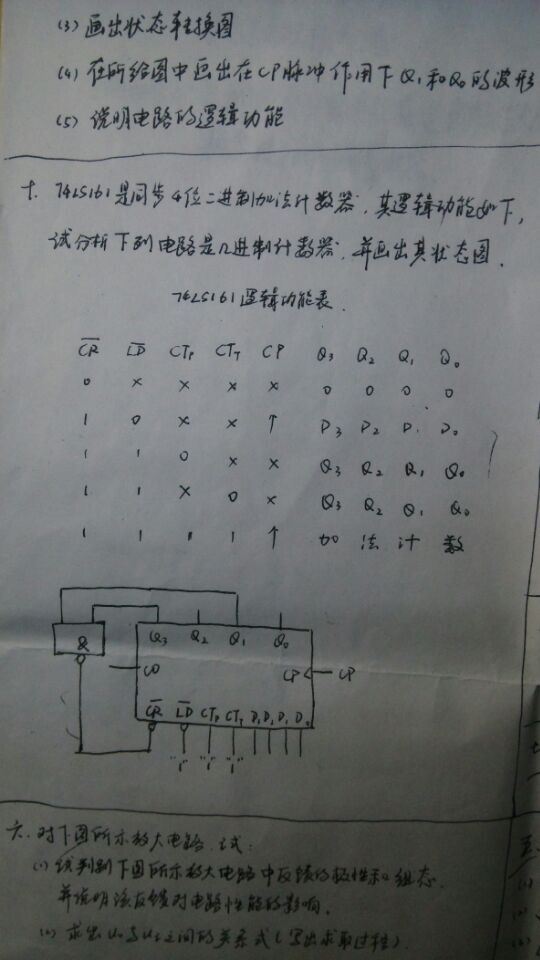 (3) 画出状态转换图
(4) 在所给图中画出在CP脉冲作用下Q₁和Q₀的波形
(5) 说明电路的逻辑功能
十. 74LS161是同步4位二进制加法计数器, 其逻辑功能如下,
试分析下列电路是几进制计数器, 并画出其状态图.
74LS161逻辑功能表.
C̅R̅ L̅D̅ CT_P CT_T CP Q₃ Q₂ Q₁ Q₀
0 × × × × 0 0 0 0
1 0 × × ↑ D₃ D₂ D₁ D₀
1 1 0 × × Q₃ Q₂ Q₁ Q₀
1 1 × 0 × Q₃ Q₂ Q₁ Q₀
1 1 1 1 ↑ 加 法 计 数
& Q₃ Q₂ Q₁ Q₀
CO CP CP
C̅R̅ L̅D̅ CT_P CT_T
"1" "1" "1"
六. 对下图所示放大电路, 试:
(1) 试判别下图所示放大电路中反馈的极性和组态
并说明该反馈对电路性能的影响.
(2) 求出 之间的关系式(写出求取过程)